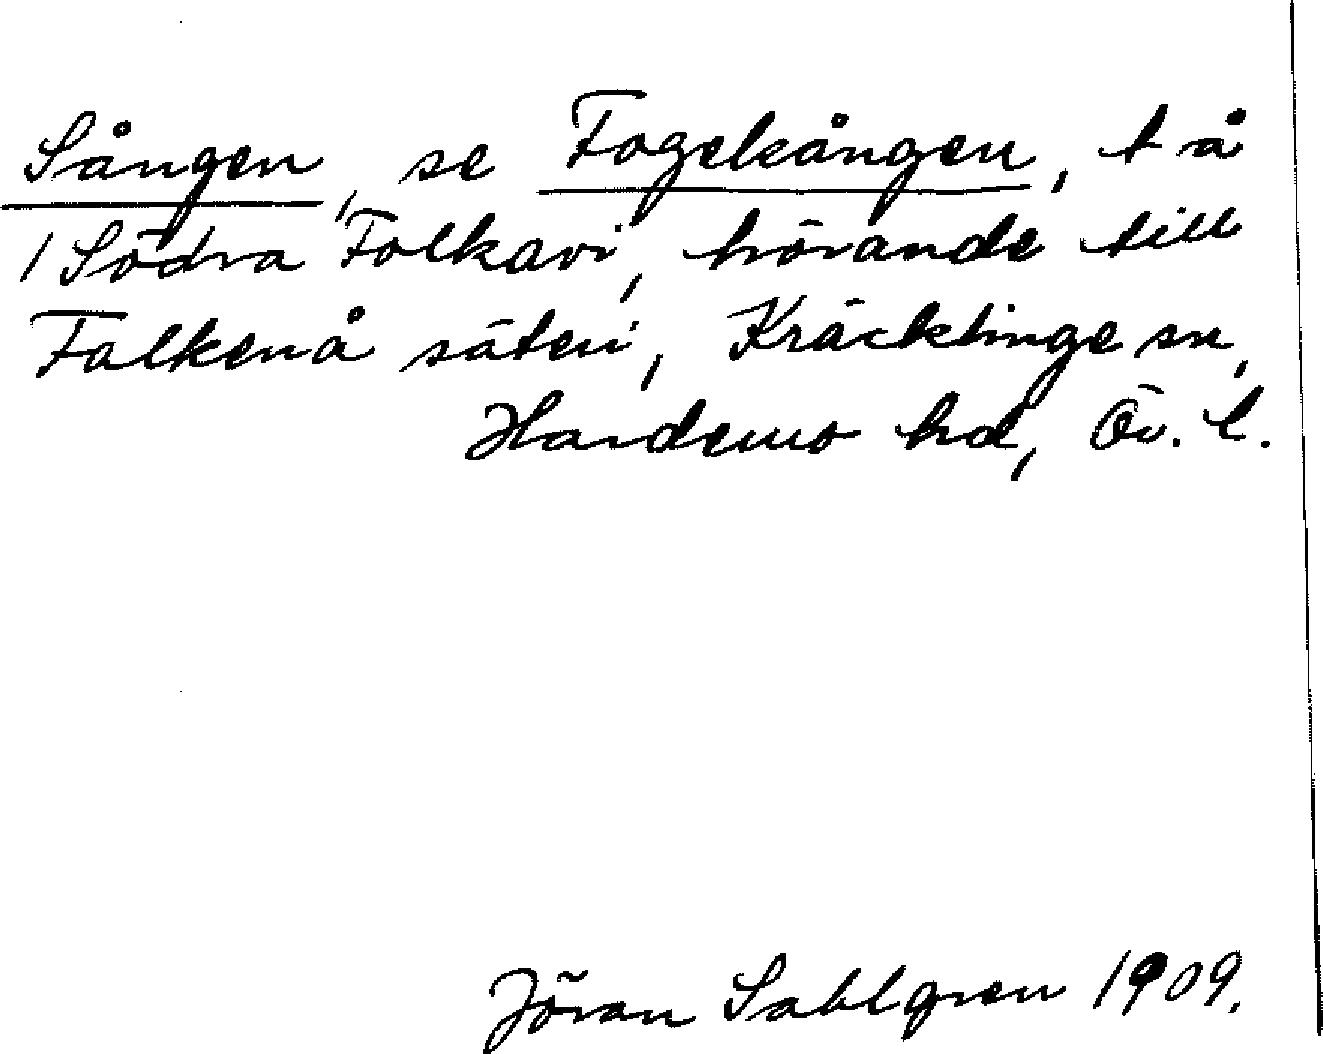 Sången, se Fogelsången, t å
/ Södra Folkavi, hörande till
Falkenå säteri, Kräcklinge sn,
Hardemo hd, Öv. l.
Jöran Sahlgren 1909.